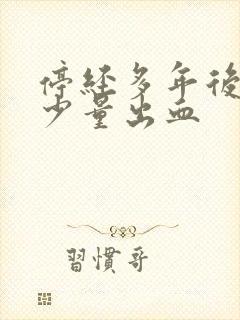 停經多年後
少量出血
習慣哥